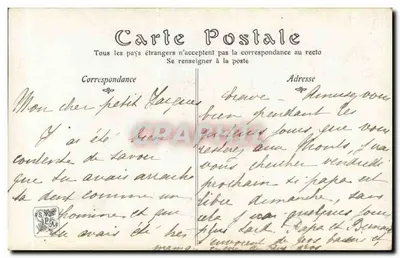 Carte Postale
Tous les pays étrangers n'acceptent pas la correspondance au recto
Se renseigner à la poste
Correspondance
Adresse
Mon cher petit Jacques
J'ai été très
contente de savoir
que tu avais arraché
ta dent comme un
homme et que
tu avais été très
brave. Amusez vous
bien pendant les
quelques jours que vous
resterez aux Monts, j'irai
vous chercher vendredi
prochain si papa est
libre dimanche, sans
cela j'irai quelques jours
plus tard. Papa et
envoient de gros baisers et
maman